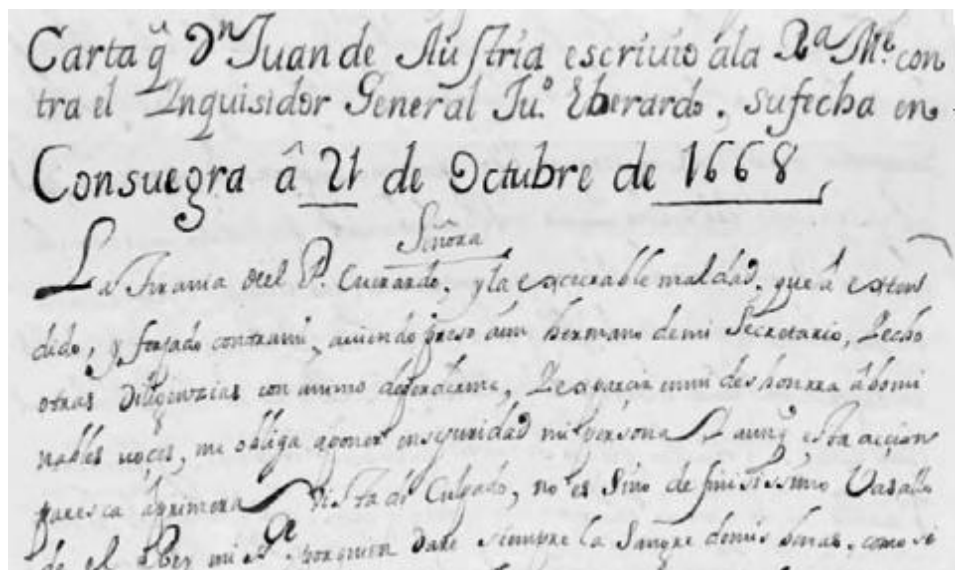 Carta q̃ Dⁿ Juan de Austria escriuio ála Rᵃ Mᵉ con
tra el Inquisidor General Juº Eberardo. su fecha en
Consuegra â 21 de Octubre de 1668,
Señora
La tirania deel P. Euerardo, y la execrable maldad, que á exten
dido, y forjado contrami, auiendo preso áun hermano demi Secretario, Zecho
otras diligenzias con animo deperderme, Zesparcir enmi deshonrra âbomi
nables uoçes, me obliga aponer enseguridad mi persona Y aunq̃ esta accion
paresca áprimera Vista de Culpado, no es Sino de finisissimo Vasallo
de el Rey mi Sʳ porquien dare siempre la Sangre demis benas, como si